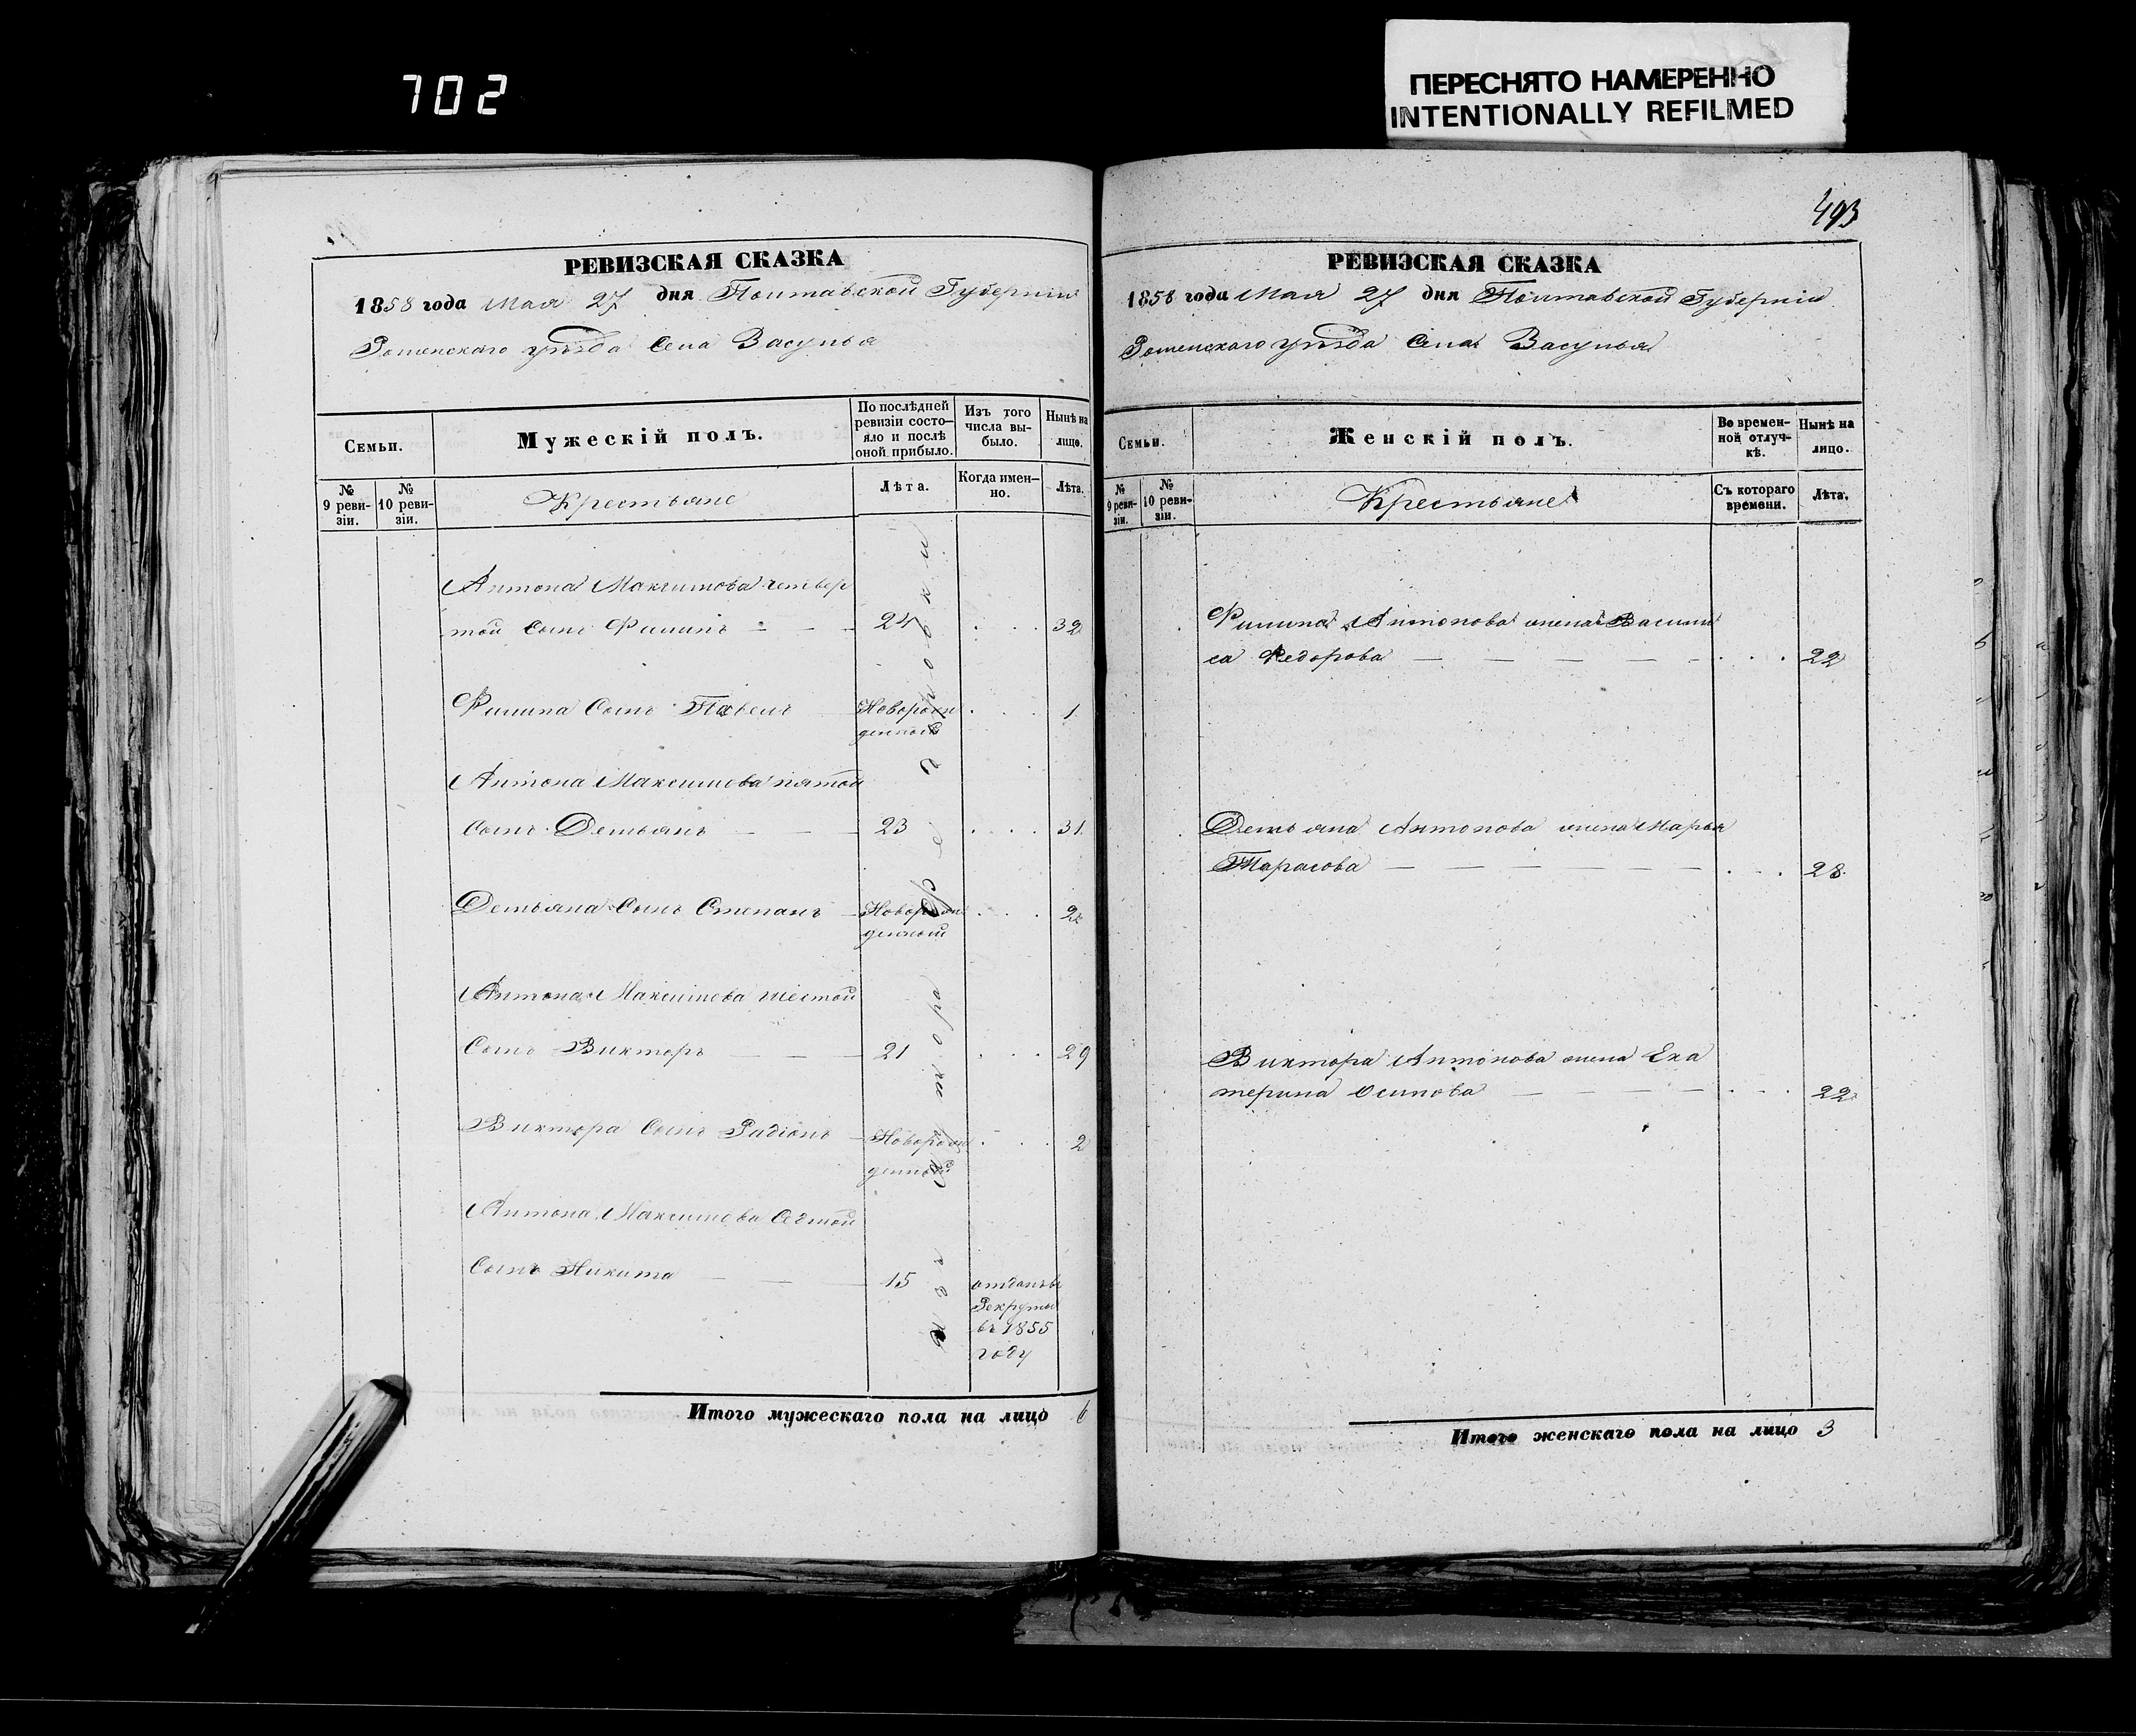 702
ПЕРЕСНЯТО НАМЕРЕННО
INTENTIONALLY REFILMED
РЕВИЗСКАЯ СКАЗКА
1858 года Мая 27 дня Полтавской Губерніи
Роменскаго уѣзда Села Засулья
Семьи.
Мужескій полъ.
По послѣдней
ревизіи состо-
яло и послѣ
оной прибыло.
Изъ того
числа вы-
было.
Нынѣ на
лицо.
№
9 реви-
зіи.
№
10 реви-
зіи.
Крестьяне
Лѣта.
Когда имен-
но.
Лѣта.
Антона Максимова четвер
той Сынъ Филипъ 24 32
Филипа Сынъ Павелъ Новорож 1
денной
Антона Максимова пятой
Сынъ Демьянъ 23 31
Демьяна Сынъ Степанъ Новорож 2
денной
Антона Максимова шестой
Сынъ Викторъ 21 29
Виктора Сынъ Радіонъ Новорож 2
денной
Антона Максимова Седмой
Сынъ Никита 15 отданъ въ
Рекруты
въ 1855
году
Итого мужескаго пола на лицо 6
493
РЕВИЗСКАЯ СКАЗКА
1858 года Мая 27 дня Полтавской Губерніи
Роменскаго уѣзда Села Засулья
Семьи.
Женскій полъ.
Во времен-
ной отлуч-
кѣ.
Нынѣ на
лицо.
№
9 реви-
зіи.
№
10 реви-
зіи.
Крестьяне
Съ котораго
времени.
Лѣта.
Филипа Антонова жена Васили
са Федорова 22
Демьяна Антонова жена Марья
Тарасова 28
Виктора Антонова жена Ека
терина Осипова 22
Итого женскаго пола на лицо 3